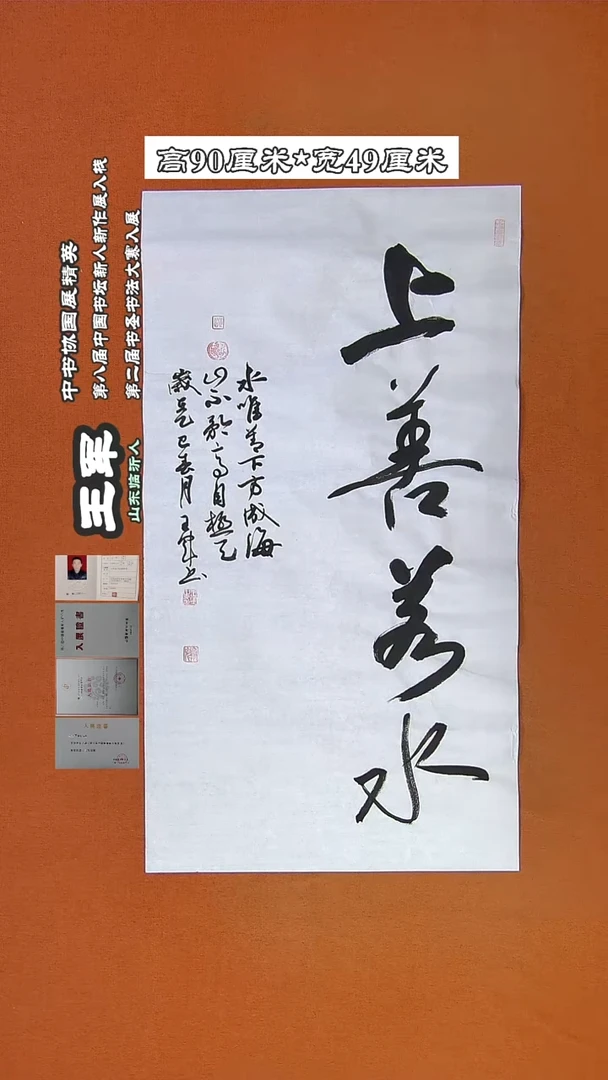 高90厘米*宽49厘米
上善若水
水唯善下方成海
山不矜高自極天
歲在乙巳春月王军书
中书协国展精英
第八届中国书坛新人新作展入栈
第二届书圣书法大赛入展
王军
山东临沂人
入展證書